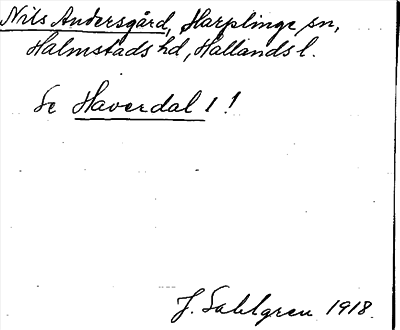 Nils Andersgård, Harplinge sn,
Halmstads hd, Hallands l.
Se Haverdal 1!
J. Sahlgren 1918.